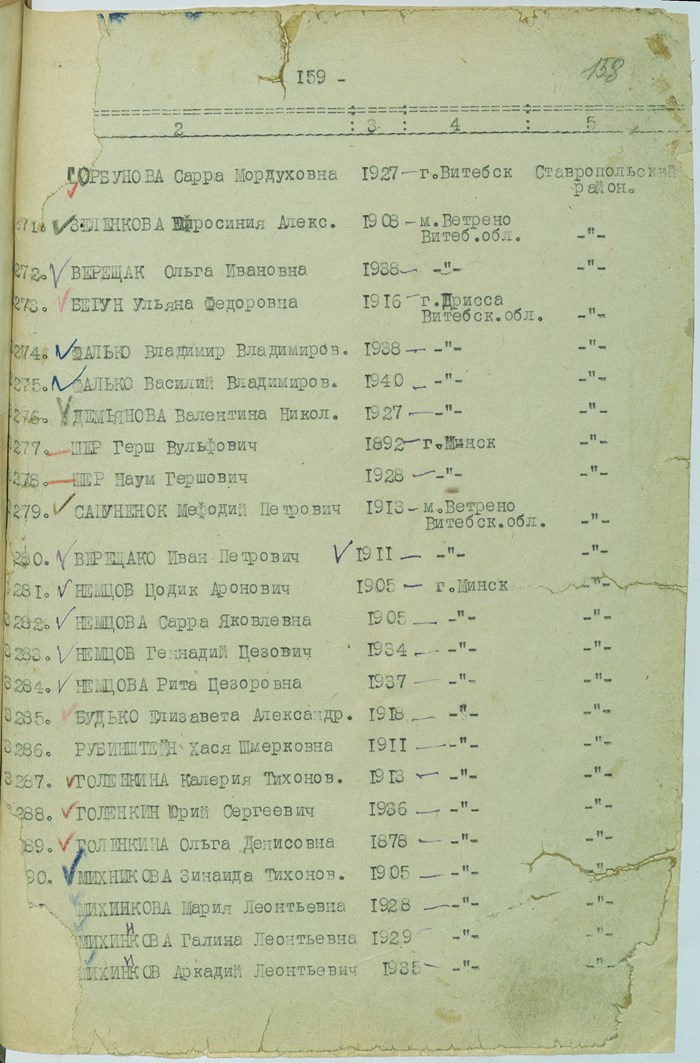 159 -
158
2 : 3 : 4 : 5
ГОРБУНОВА Сарра Мордуховна 1927 - г.Витебск Ставропольский
район.
71. ЗЕЛЕНКОВА Ефросиния Алекс. 1908 - м.Ветрено
Витеб.обл. -"-
272. ВЕРЕЩАК Ольга Ивановна 1938 - -"- -"-
273. БЕГУН Ульяна Федоровна 1916 - г.Дрисса
Витебск.обл. -"-
274. ФАЛЬКО Владимир Владимиров. 1938 - -"- -"-
275. ФАЛЬКО Василий Владимиров. 1940 - -"- -"-
276. ДЕМЬЯНОВА Валентина Никол. 1927 - -"- -"-
277. ШЕР Герш Вульфович 1892 - г.Минск -"-
278. ШЕР Наум Гершович 1928 - -"- -"-
279. САПУНЕНОК Мефодий Петрович 1913 - м.Ветрено
Витебск.обл. -"-
280. ВЕРЕЩАКО Иван Петрович 1911 - -"- -"-
281. НЕМЦОВ Цодик Аронович 1905 - г.Минск -"-
3282. НЕМЦОВА Сарра Яковлевна 1905 - -"- -"-
3283. НЕМЦОВ Геннадий Цезович 1934 - -"- -"-
3284. НЕМЦОВА Рита Цезоровна 1937 - -"- -"-
3285. БУДЬКО Елизавета Александр. 1918 - -"- -"-
3286. РУБИНШТЕЙН Хася Шмерковна 1911 - -"- -"-
3287. ГОЛЕНКИНА Калерия Тихонов. 1913 - -"- -"-
288. ГОЛЕНКИН Юрий Сергеевич 1936 - -"- -"-
89. ГОЛЕНКИНА Ольга Денисовна 1878 - -"- -"-
90. МИХНИКОВА Зинаида Тихонов. 1905 - -"- -"-
МИХИНКОВА Мария Леонтьевна 1928 - -"- -"-
МИХИНКОВА Галина Леонтьевна 1929 - -"- -"-
МИХИНКОВ Аркадий Леонтьевич 1935 - -"- -"-